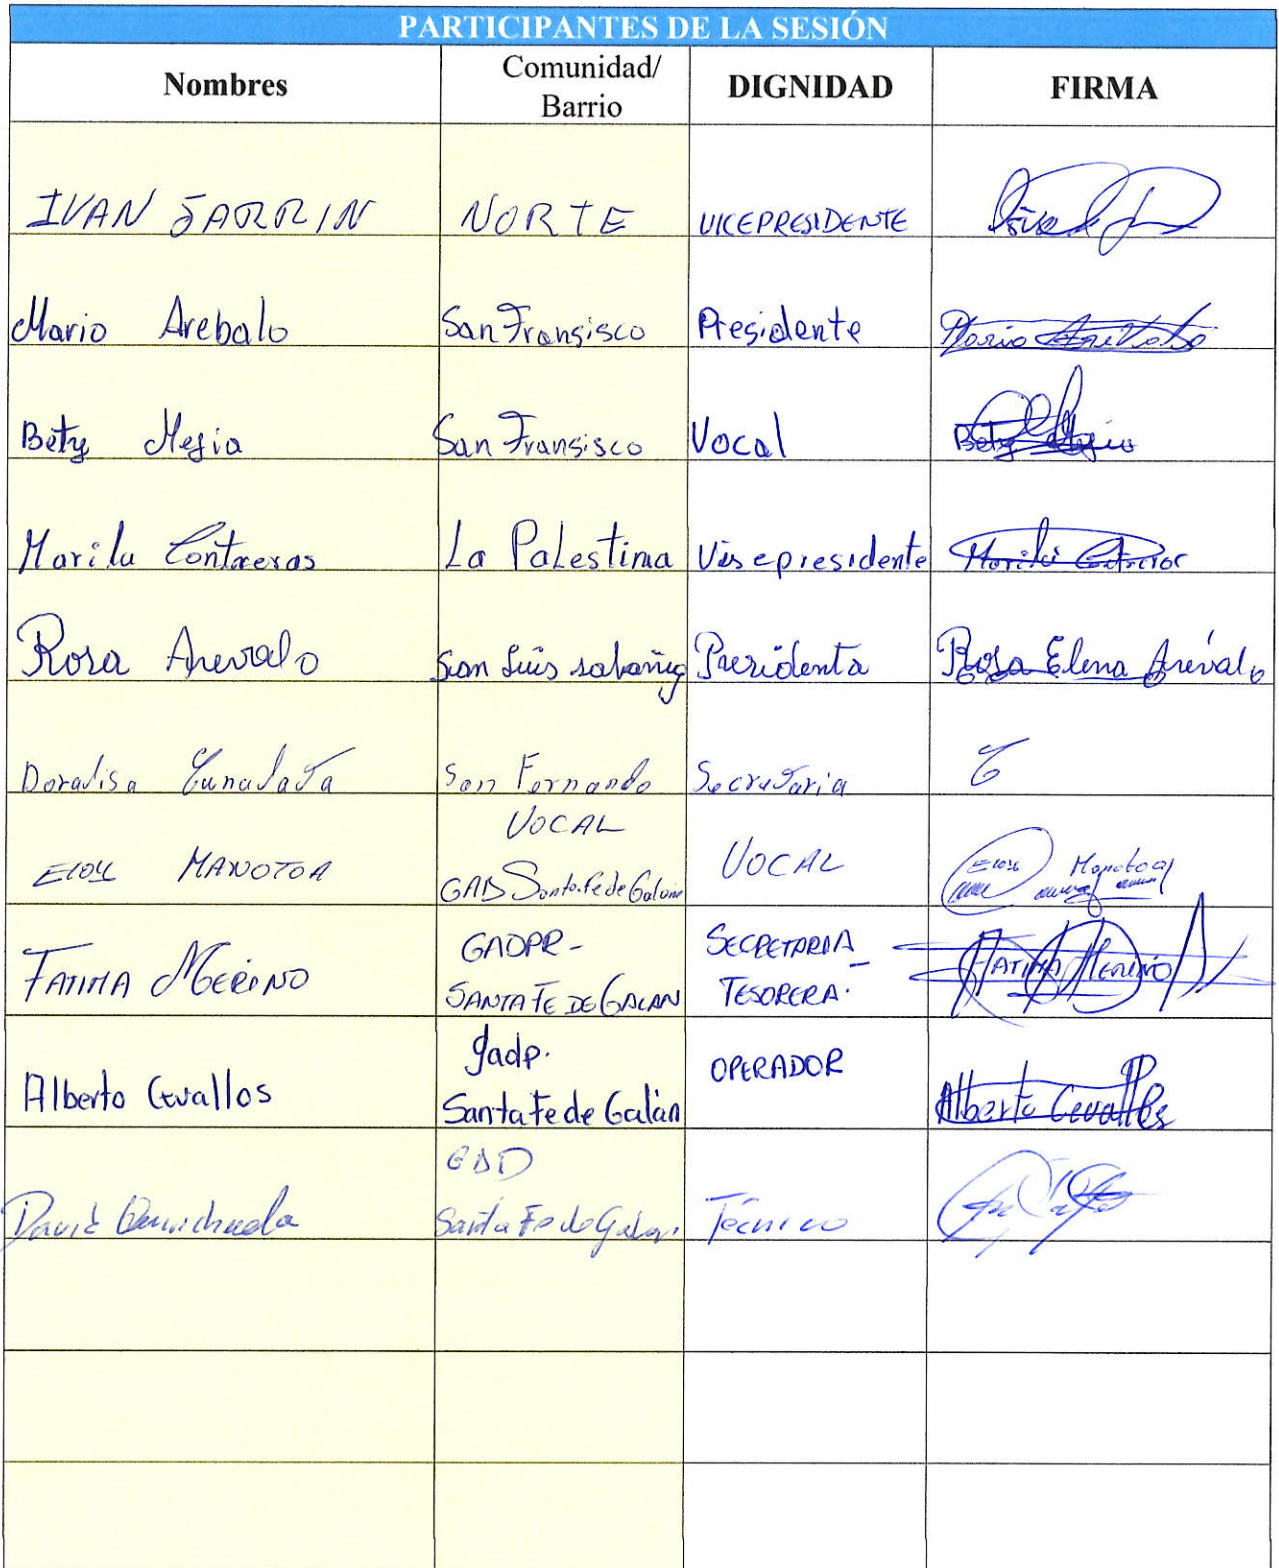 PARTICIPANTES DE LA SESIÓN
Nombres Comunidad/ Barrio DIGNIDAD FIRMA
IVAN JARRIN NORTE VICEPRESIDENTE
Mario Arebalo San Fransisco Presidente Mario Arevalo
Bety Mejia San Fransisco Vocal Bety Mejia
Marilu Contreras La PaLestina Visepresidente Marilu
Rosa Arevalo San Luis Presidenta Rosa Elena Arévalo
Doralisa San Fernando Secretaria
Eloy MANOTOA VOCAL
GAD Santa Fe de Galan VOCAL Eloy Manotoa
FATIMA MERINO GADPR-
SANTA FE DE GALAN SECRETARIA-
TESORERA. FATIMA MERINO
Alberto Cevallos gadp.
Santa Fe de Galán OPERADOR Alberto Cevallos
David GAD
Santa Fe de Galan Técnico